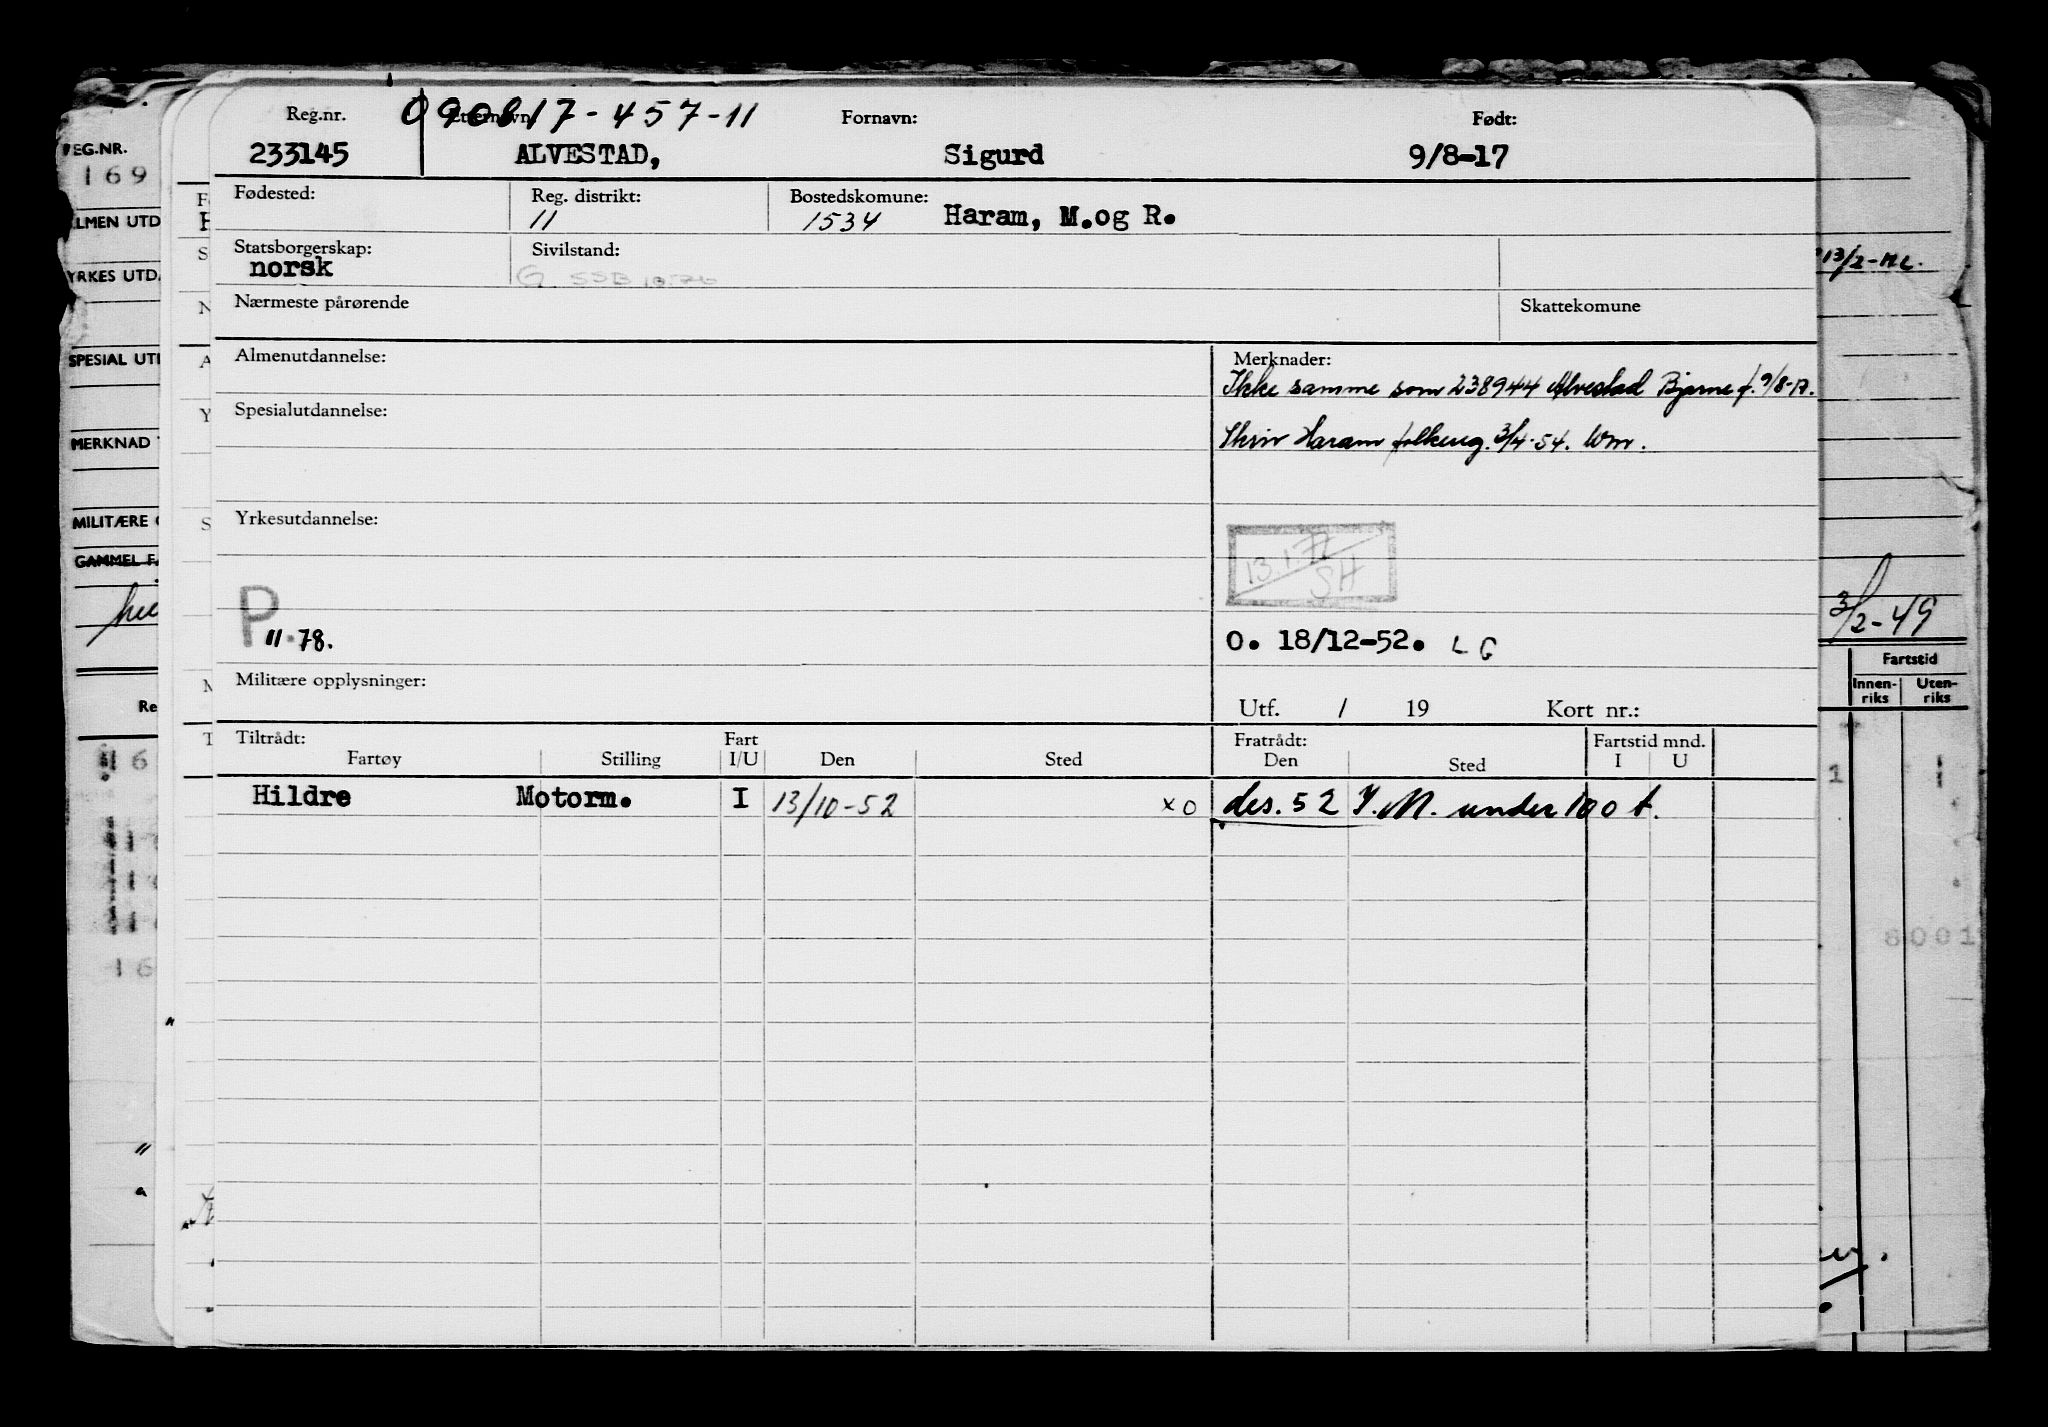 Reg.nr. 090817-457-11 Etternavn: Fornavn: Født:
233145 ALVESTAD, Sigurd 9/8-17
Fødested: Reg. distrikt: Bostedskomune:
11 1534 Haram, M.og R.
Statsborgerskap: Sivilstand:
norsk G SSB
Nærmeste pårørende Skattekomune
Almenutdannelse: Merknader:
Ikke samme som 238944 Alvestad Bjarne f. 9/8-17.
Spesialutdannelse:
Skriv Haram folkereg. 3/4-54. Wm.
Yrkesutdannelse:
13.1.77
SH
P
11.78.
O. 18/12-52. L G
Militære opplysninger:
Utf. / 19 Kort nr.:
Tiltrådt: Fart Fratrådt: Fartstid mnd.
Fartøy Stilling I/U Den Sted Den Sted I U
Hildre Motorm. I 13/10-52 x0 des. 52 I.M. under 100 t.
EG.NR.
169
LMEN UTD
YRKES UTDA
SPESIAL UTD
MERKNAD
MILITÆRE
GAMMEL FA
Re
13/2-
3/2-49
Fartstid
Innen-riks Uten-riks
1 1
6001